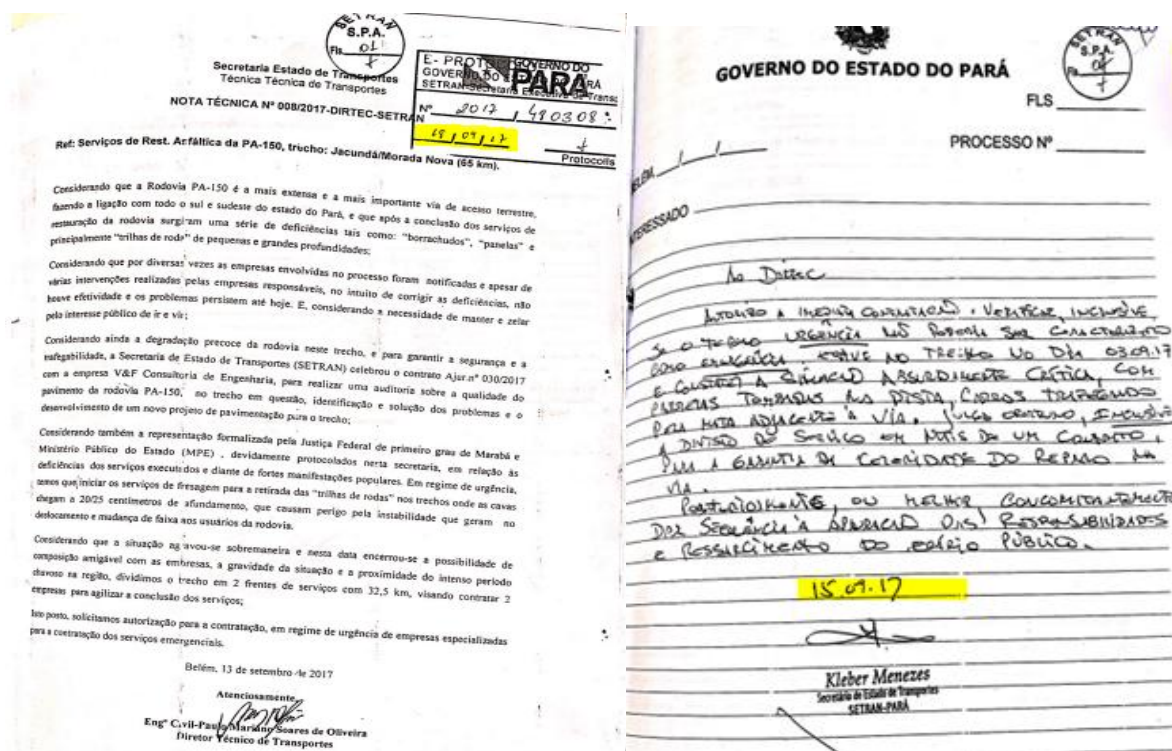 SETRAN
S.P.A.
Fls. 01
Secretaria Estado de Transportes
Técnica Técnica de Transportes
NOTA TÉCNICA Nº 008/2017-DIRTEC-SETRAN
GOVERNO DO
PARÁ
Nº 2017 / 480308
Protocolis
Ref: Serviços de Rest. Asfáltica da PA-150, trecho: Jacundá/Morada Nova (65 km).
Considerando que a Rodovia PA-150 é a mais extensa e a mais importante via de acesso terrestre,
fazendo a ligação com todo o sul e sudeste do estado do Pará, e que após a conclusão dos serviços de
restauração da rodovia surgiram uma série de deficiências tais como: "borrachudos", "panelas" e
principalmente "trilhas de roda" de pequenas e grandes profundidades;
Considerando que por diversas vezes as empresas envolvidas no processo foram notificadas e apesar de
várias intervenções realizadas pelas empresas responsáveis, no intuito de corrigir as deficiências, não
houve efetividade e os problemas persistem até hoje. E, considerando a necessidade de manter e zelar
pelo interesse público de ir e vir;
Considerando ainda a degradação precoce da rodovia neste trecho, e para garantir a segurança e a
trafegabilidade, a Secretaria de Estado de Transportes (SETRAN) celebrou o contrato Ajur.nº 030/2017
com a empresa V&F Consultoria de Engenharia, para realizar uma auditoria sobre a qualidade do
pavimento da rodovia PA-150, no trecho em questão, identificação e solução dos problemas e o
desenvolvimento de um novo projeto de pavimentação para o trecho;
Considerando também a representação formalizada pela Justiça Federal de primeiro grau de Marabá e
Ministério Público do Estado (MPE) , devidamente protocolados nerta secretaria, em relação às
deficiências dos serviços executados e diante de fortes manifestações populares. Em regime de urgência,
temos que iniciar os serviços de fresagem para a retirada das "trilhas de rodas" nos trechos onde as cavas
chegam a 20/25 centímetros de afundamento, que causam perigo pela instabilidade que geram no
deslocamento e mudança de faixa aos usuários da rodovia.
Considerando que a situação agravou-se sobremaneira e nesta data encerrou-se a possibilidade de
composição amigável com as empresas, a gravidade da situação e a proximidade do intenso período
chuvoso na região, dividimos o trecho em 2 frentes de serviços com 32,5 km, visando contratar 2
empresas para agilizar a conclusão dos serviços;
Isto posto, solicitamos autorização para a contratação, em regime de urgência de empresas especializadas
para a contratação dos serviços emergenciais.
Belém, 13 de setembro de 2017
Atenciosamente,
Engº Civil-Paulo Mariano Soares de Oliveira
Diretor Técnico de Transportes
SETRAN
S.P.A.
GOVERNO DO ESTADO DO PARÁ
FLS
PROCESSO Nº
BELÉM, / /
INTERESSADO
Ao Dirtec
Autorizo a imediata contratação. Verificar, inclusive
se o termo urgência não poderia ser caracterizado
como emergência. Estive no trecho no dia 03.09.17
e constatei a situação absurdamente crítica, com
carretas tombadas na pista, carros trafegando
pela mata adjacente à via. Julgo oportuno, inclusive
a divisão do serviço em mais de um contrato,
para a garantia da celeridade do reparo da
via.
Posteriormente, ou melhor concomitantemente
dar sequência à apuração das responsabilidades
e ressarcimento do erário público.
15.09.17
Kleber Menezes
Secretário de Estado de Transportes
SETRAN-PARÁ